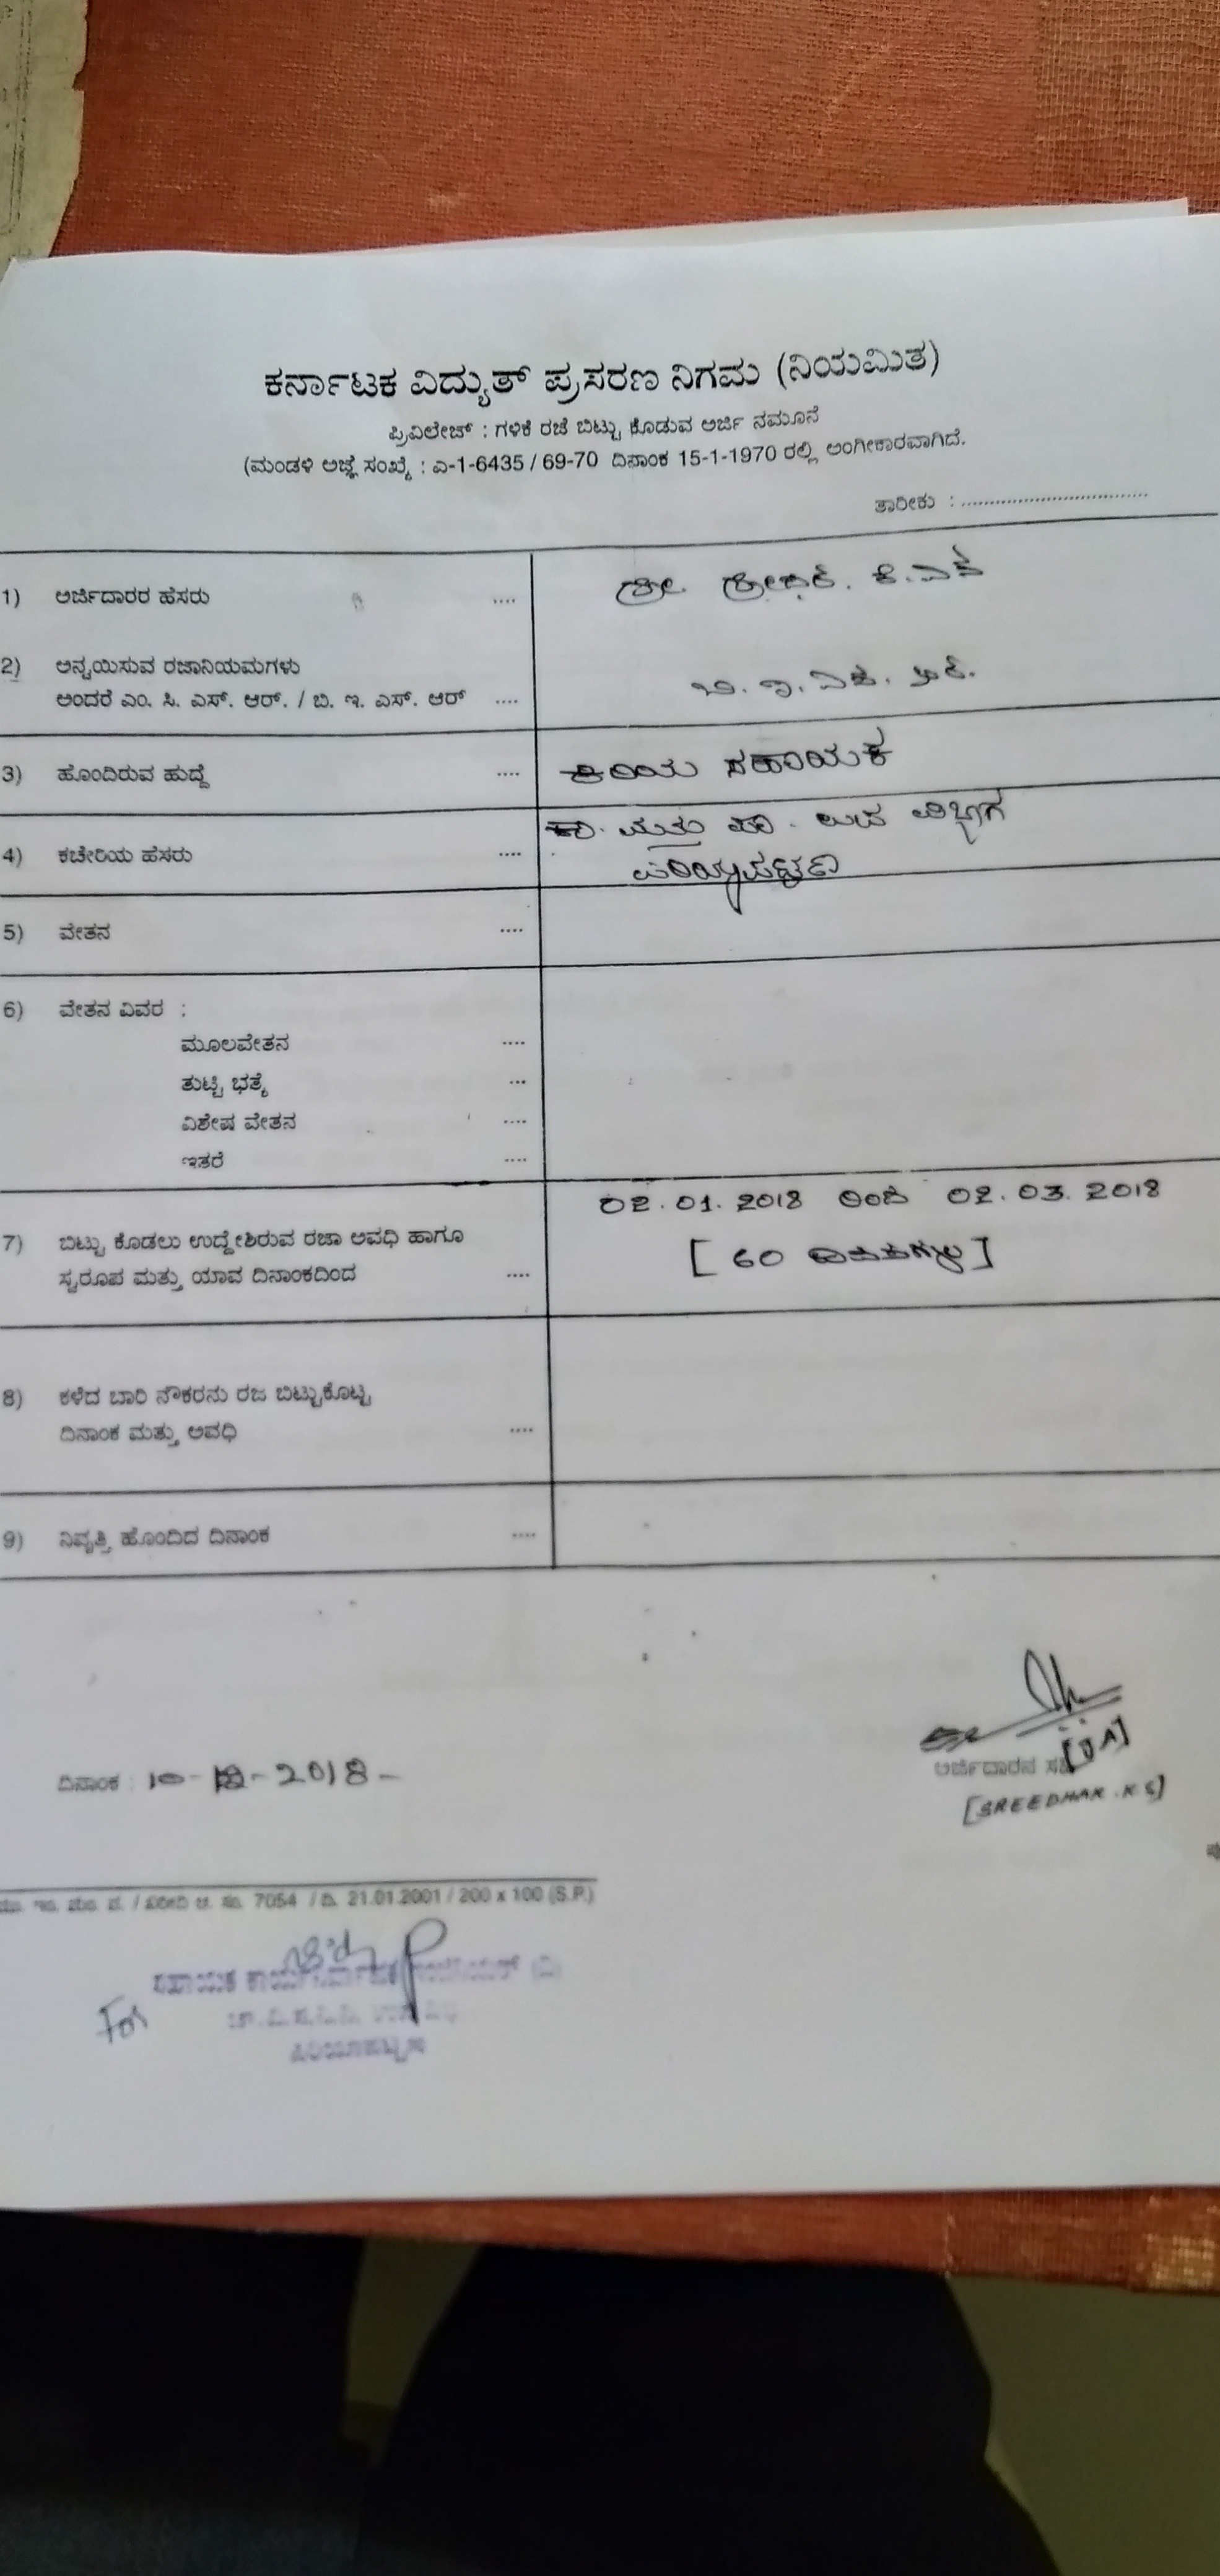 ಕರ್ನಾಟಕ ವಿದ್ಯುತ್ ಪ್ರಸರಣ ನಿಗಮ (ನಿಯಮಿತ)
ಪ್ರಿವಿಲೇಜ್ : ಗಳಿಕೆ ರಜೆ ಬಿಟ್ಟು ಕೊಡುವ ಅರ್ಜಿ ನಮೂನೆ
(ಮಂಡಳಿ ಆಜ್ಞೆ ಸಂಖ್ಯೆ : ಎ-1-6435 / 69-70 ದಿನಾಂಕ 15-1-1970 ರಲ್ಲಿ ಅಂಗೀಕಾರವಾಗಿದೆ.
ತಾರೀಕು : ................................
1) ಅರ್ಜಿದಾರರ ಹೆಸರು .... ಶ್ರೀ. ಶ್ರೀಧರ್. ಕೆ.ಎಸ್
2) ಅನ್ವಯಿಸುವ ರಜಾನಿಯಮಗಳು
ಅಂದರೆ ಎಂ. ಸಿ. ಎಸ್. ಆರ್. / ಬಿ. ಇ. ಎಸ್. ಆರ್ .... ಬಿ. ಇ. ಎಸ್. ಆರ್.
3) ಹೊಂದಿರುವ ಹುದ್ದೆ .... ಕಿರಿಯ ಸಹಾಯಕ
4) ಕಚೇರಿಯ ಹೆಸರು .... ಕಾ. ಮತ್ತು ಪಾ. ಉಪ ವಿಭಾಗ
ಪಿರಿಯಾಪಟ್ಟಣ
5) ವೇತನ ....
6) ವೇತನ ವಿವರ :
ಮೂಲವೇತನ ....
ತುಟ್ಟಿ ಭತ್ಯೆ ...
ವಿಶೇಷ ವೇತನ ....
ಇತರೆ ....
02.01.2018 ರಿಂದ 02.03.2018
7) ಬಿಟ್ಟು ಕೊಡಲು ಉದ್ದೇಶಿರುವ ರಜಾ ಅವಧಿ ಹಾಗೂ
[60 ದಿವಸಗಳು]
ಸ್ವರೂಪ ಮತ್ತು ಯಾವ ದಿನಾಂಕದಿಂದ ....
8) ಕಳೆದ ಬಾರಿ ನೌಕರನು ರಜ ಬಿಟ್ಟುಕೊಟ್ಟ
ದಿನಾಂಕ ಮತ್ತು ಅವಧಿ ....
9) ನಿವೃತ್ತಿ ಹೊಂದಿದ ದಿನಾಂಕ ....
ದಿನಾಂಕ : 10-12-2018-
[JA]
ಅರ್ಜಿದಾರನ ಸಹಿ
[SREEDHAR.K.S]
7054 / ದಿ. 21.01.2001 / 200 x 100 (S.P.)
ಸಹಾಯಕ ಕಾರ್ಯನಿರ್ವಾಹಕ ಇಂಜಿನಿಯರ್ (ವಿ)
For
ಪಿರಿಯಾಪಟ್ಟಣ